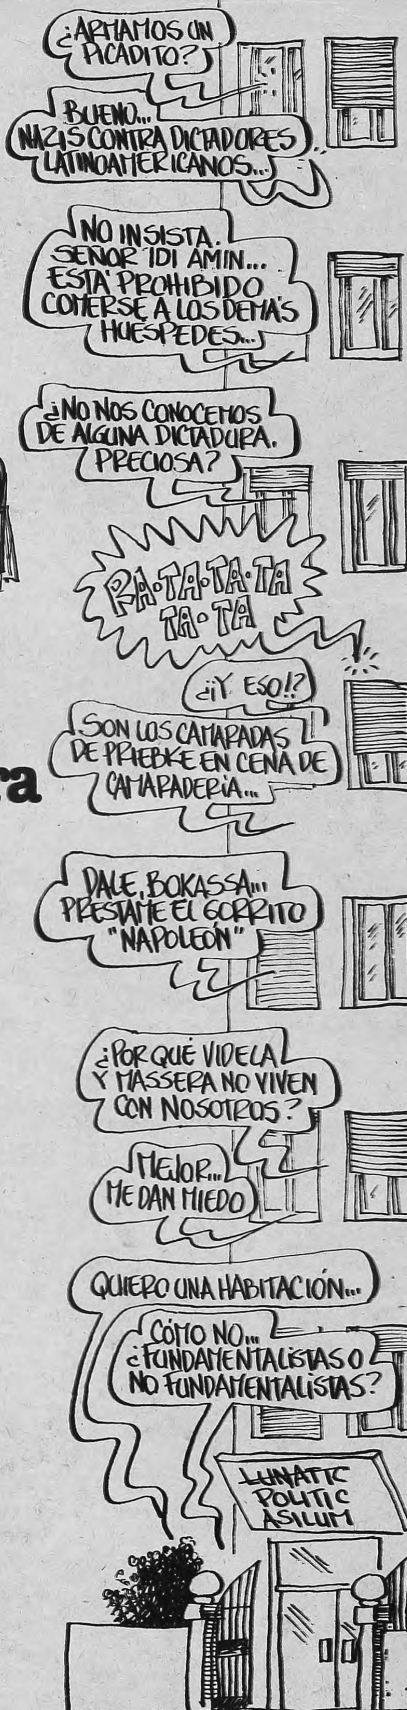 ¿ARMAMOS UN
PICADITO?
BUENO...
NAZIS CONTRA DICTADORES
LATINOAMERICANOS...
NO INSISTA.
SEÑOR IDI AMIN...
ESTÁ PROHIBIDO
COMERSE A LOS DEMÁS
HUESPEDES...
¿NO NOS CONOCEMOS
DE ALGUNA DICTADURA,
PRECIOSA?
RA-TA-TA-TA
TA-TA
¿¡Y ESO!?
SON LOS CAMARADAS
DE PRIEBKE EN CENA DE
CAMARADERÍA...
ra
DALE, BOKASSA...
PRESTAME EL GORRITO
"NAPOLEÓN"
¿POR QUÉ VIDELA
Y MASSERA NO VIVEN
CON NOSOTROS?
MEJOR...
ME DAN MIEDO
QUIERO UNA HABITACIÓN...
CÓMO NO...
¿FUNDAMENTALISTAS O
NO FUNDAMENTALISTAS?
LUNATIC
POLITIC
ASILUM